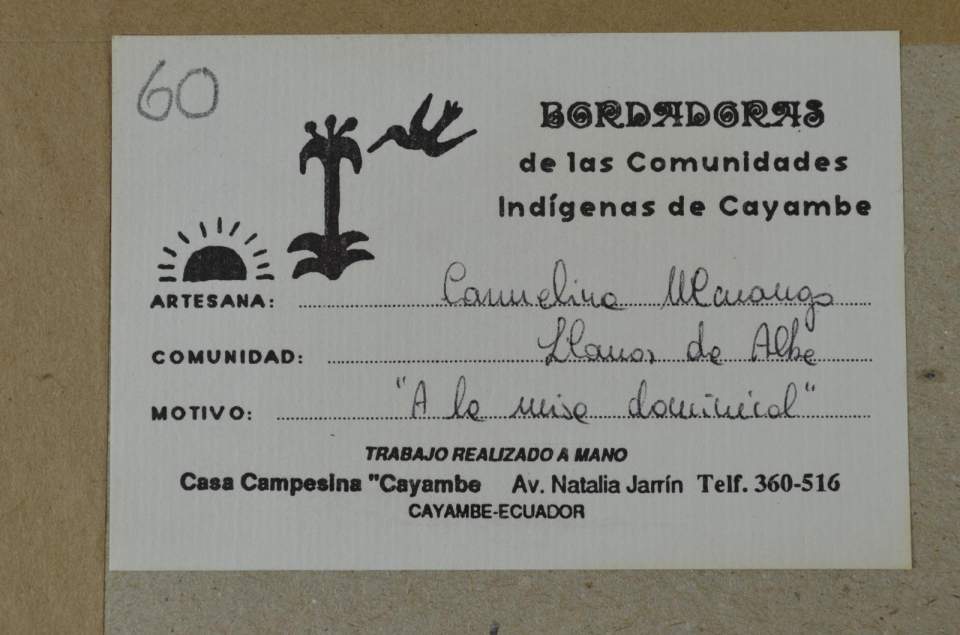 60
BORDADORAS
de las Comunidades
Indígenas de Cayambe
ARTESANA: Carmelina
COMUNIDAD: Llanos de Alba
MOTIVO: "A la misa dominical"
TRABAJO REALIZADO A MANO
Casa Campesina "Cayambe Av. Natalia Jarrín Telf. 360-516
CAYAMBE-ECUADOR